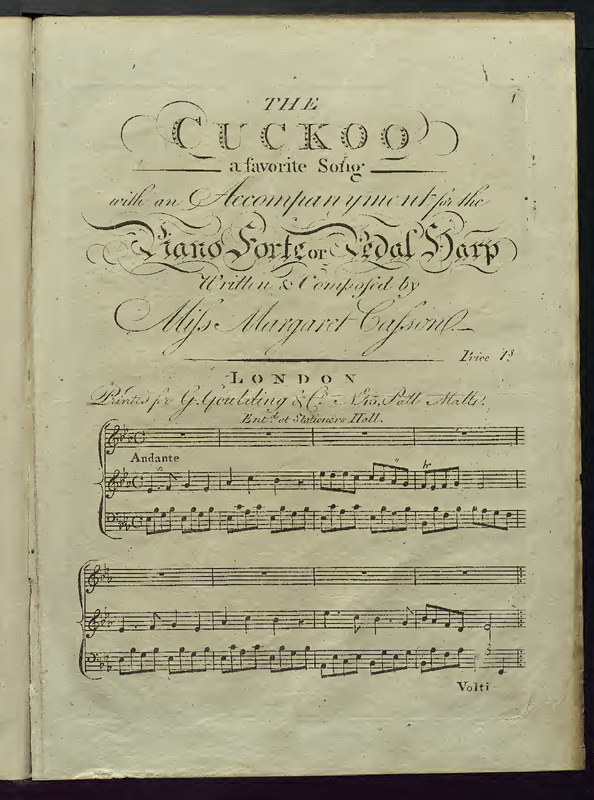 1
THE
CUCKOO
a favorite Song
with an Accompanyment for the
Piano Forte or Pedal Harp
Written & Composed by
Miss Margaret Casson.
Price 1s
LONDON
Printed for G. Goulding & Co. Pall Mall.
Entd. at Stationers Hall.
Andante
tr
Volti